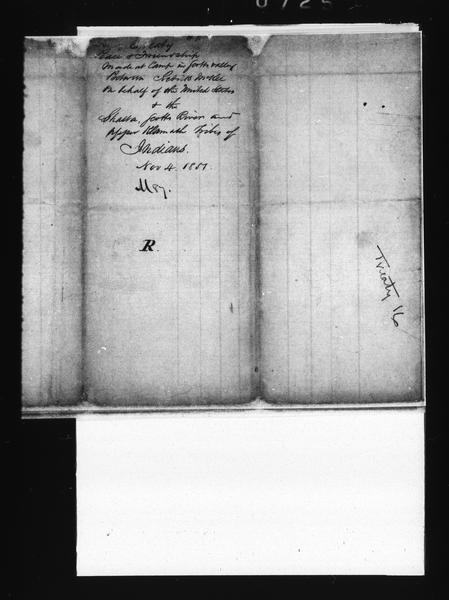 Treaty
Peace & Friendship
Made at Camp in Scotts Valley
Between Redick McKee
on behalf of the United States
& the
Shasta, Scotts River and
Upper Klamath Tribes of
Indians.
Nov 4. 1851.
R
Treaty 16